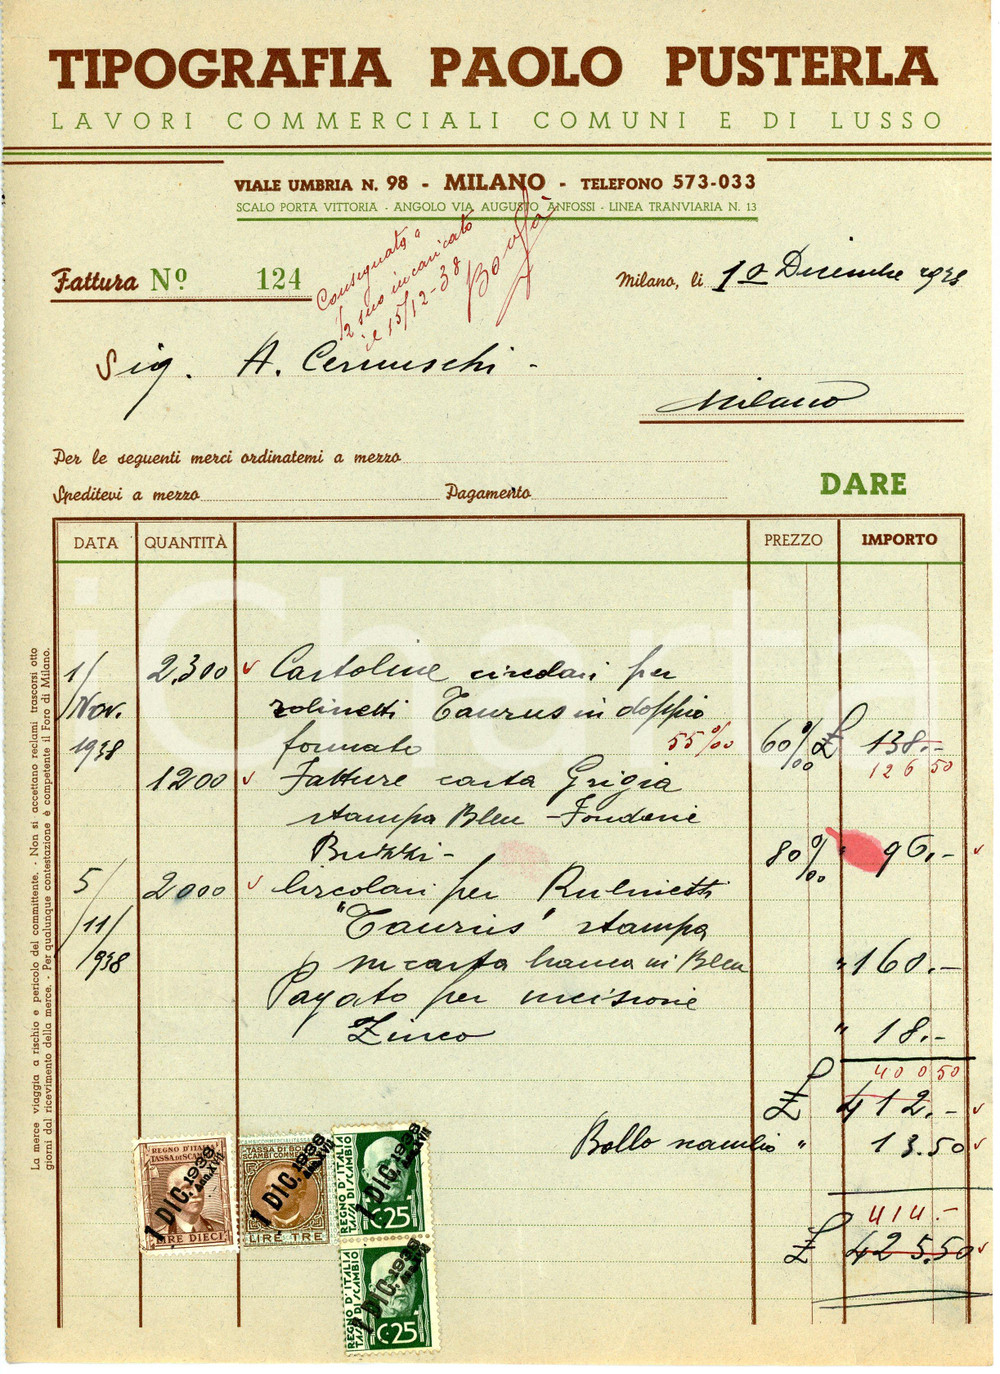 TIPOGRAFIA PAOLO PUSTERLA
LAVORI COMMERCIALI COMUNI E DI LUSSO
VIALE UMBRIA N. 98 - MILANO - TELEFONO 573-033
SCALO PORTA VITTORIA - ANGOLO VIA AUGUSTO ANFOSSI - LINEA TRANVIARIA N. 13
Consegnata a
suo incaricato
il 15/12-38
Fattura Nº 124
Milano, li 10 Dicembre 1938
Sig. A. Cernuschi -
Milano
Per le seguenti merci ordinatemi a mezzo
Speditevi a mezzo Pagamento
DARE
DATA QUANTITÀ PREZZO IMPORTO
1/ 2.300 Cartoline circolari per
Nov. rolinetti Taurus in doppio
1938 formato 55%00 60%00 £ 138.-
126 50
1200 Fatture carta Grigia
stampa Bleu - Fonderie
Buzzi - 80%00 " 96.-
5/ 2000 Circolari per Rulinetti
11/ "Taurus" stampa
938 in carta bianca in Bleu " 160.-
Pagato per incisione
Zinco " 18.-
400 50
£ 412.-
Bollo scambio " 13.50
414.-
£ 425.50
La merce viaggia a rischio e pericolo del committente. - Non si accettano reclami trascorsi otto
giorni dal ricevimento della merce. - Per qualunque contestazione è competente il Foro di Milano.
REGNO D'ITALIA
TASSA DI SCAMBIO
LIRE DIECI
1 DIC. 1938
ANNO XVII
TASSA DI BOLLO
SCAMBI COMMERCIALI
LIRE TRE
1 DIC. 1938
ANNO XVII
REGNO D'ITALIA
TASSA DI SCAMBIO
C. 25
1 DIC. 1938
ANNO XVII
REGNO D'ITALIA
TASSA DI SCAMBIO
C. 25
1 DIC. 1938
ANNO XVII
iCharta